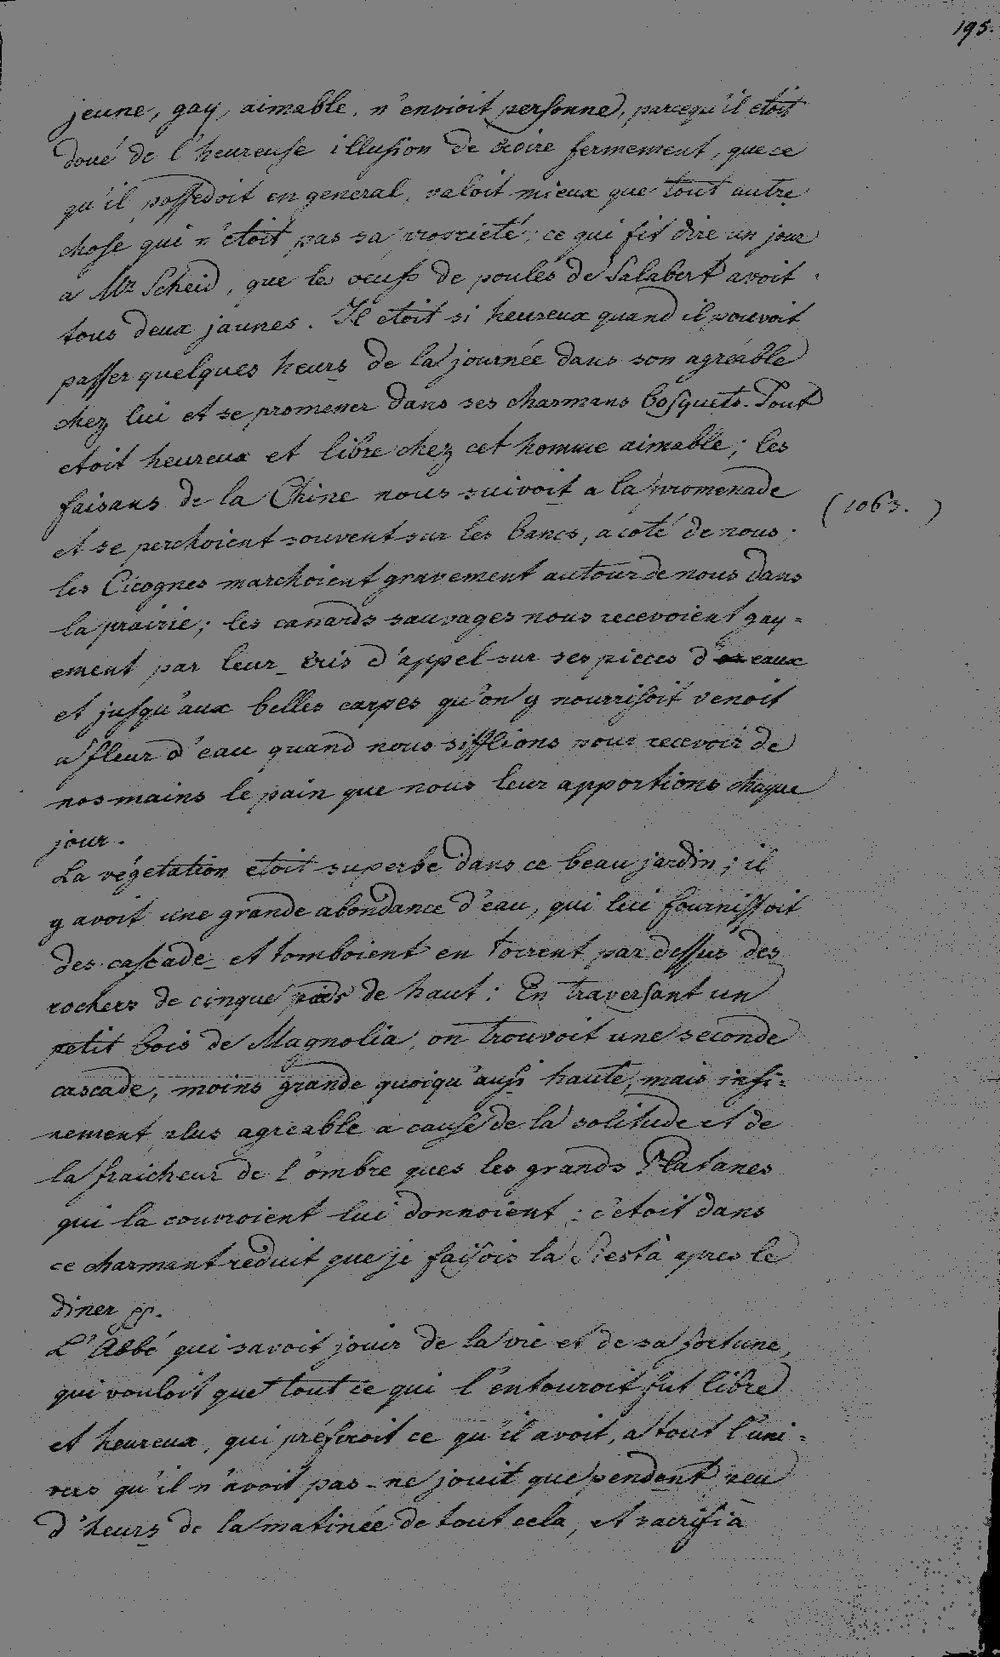 195.
jeune, gay, aimable, n'envioit personne, parcequ'il etoit
doué de l'heureuse illusion de croire fermement, que ce
qu'il possedoit en general, valoit mieux que tout autre
chose qui n'etoit pas sa proprieté; ce qui fit dire un jour
a Mr Scheid, que les oeufs de poules de Salabert avoit
tous deux jaunes. Il etoit si heureux quand il pouvoit
passer quelques heurs de la journée dans son agréable
chez lui et se promener dans ses charmans bosquets. Tout
etoit heureux et libre chez cet homme aimable; les
faisans de la Chine nous suivoit a la promenade
(1063.)
et se perchoient souvent sur les bancs, a coté de nous;
les Cicognes marchoient gravement autour de nous dans
la prairie; les canards sauvages nous recevoient gay-
ement par leur cris d'appel sur ses pieces d'eaux
et jusqu'aux belles carpes qu'on y nourrisoit venoit
a fleur d'eau quand nous sifflions pour recevoir de
nos mains le pain que nous leur apportions chaque
jour.
La végétation etoit superbe dans ce beau jardin; il
y avoit une grande abondance d'eau, qui lui fournissoit
des cascade et tomboient en torrent par dessus des
rochers de cinque pieds de haut: En traversant un
petit bois de Magnolia, on trouvoit une seconde
cascade, moins grande quoiqu'aussi haute, mais infi-
nement plus agreable a cause de la solitude et de
la fraicheur de l'ombre ques les grands Platanes
qui la couvroient lui donnoient; c'etoit dans
ce charmant reduit que je faisois la Siesta apres le
diner pp.
L'Abbé qui savoit jouir de la vie et de sa fortune,
qui vouloit que tout ce qui l'entouroit fut libre
et heureux, qui préferoit ce qu'il avoit, a tout l'uni-
vers qu'il n'avoit pas - ne jouit que pendant peu
d'heurs de la matinée de tout cela, et sacrifia